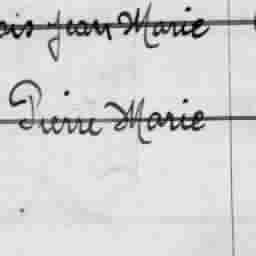 ois Jean Marie
Pierre Marie